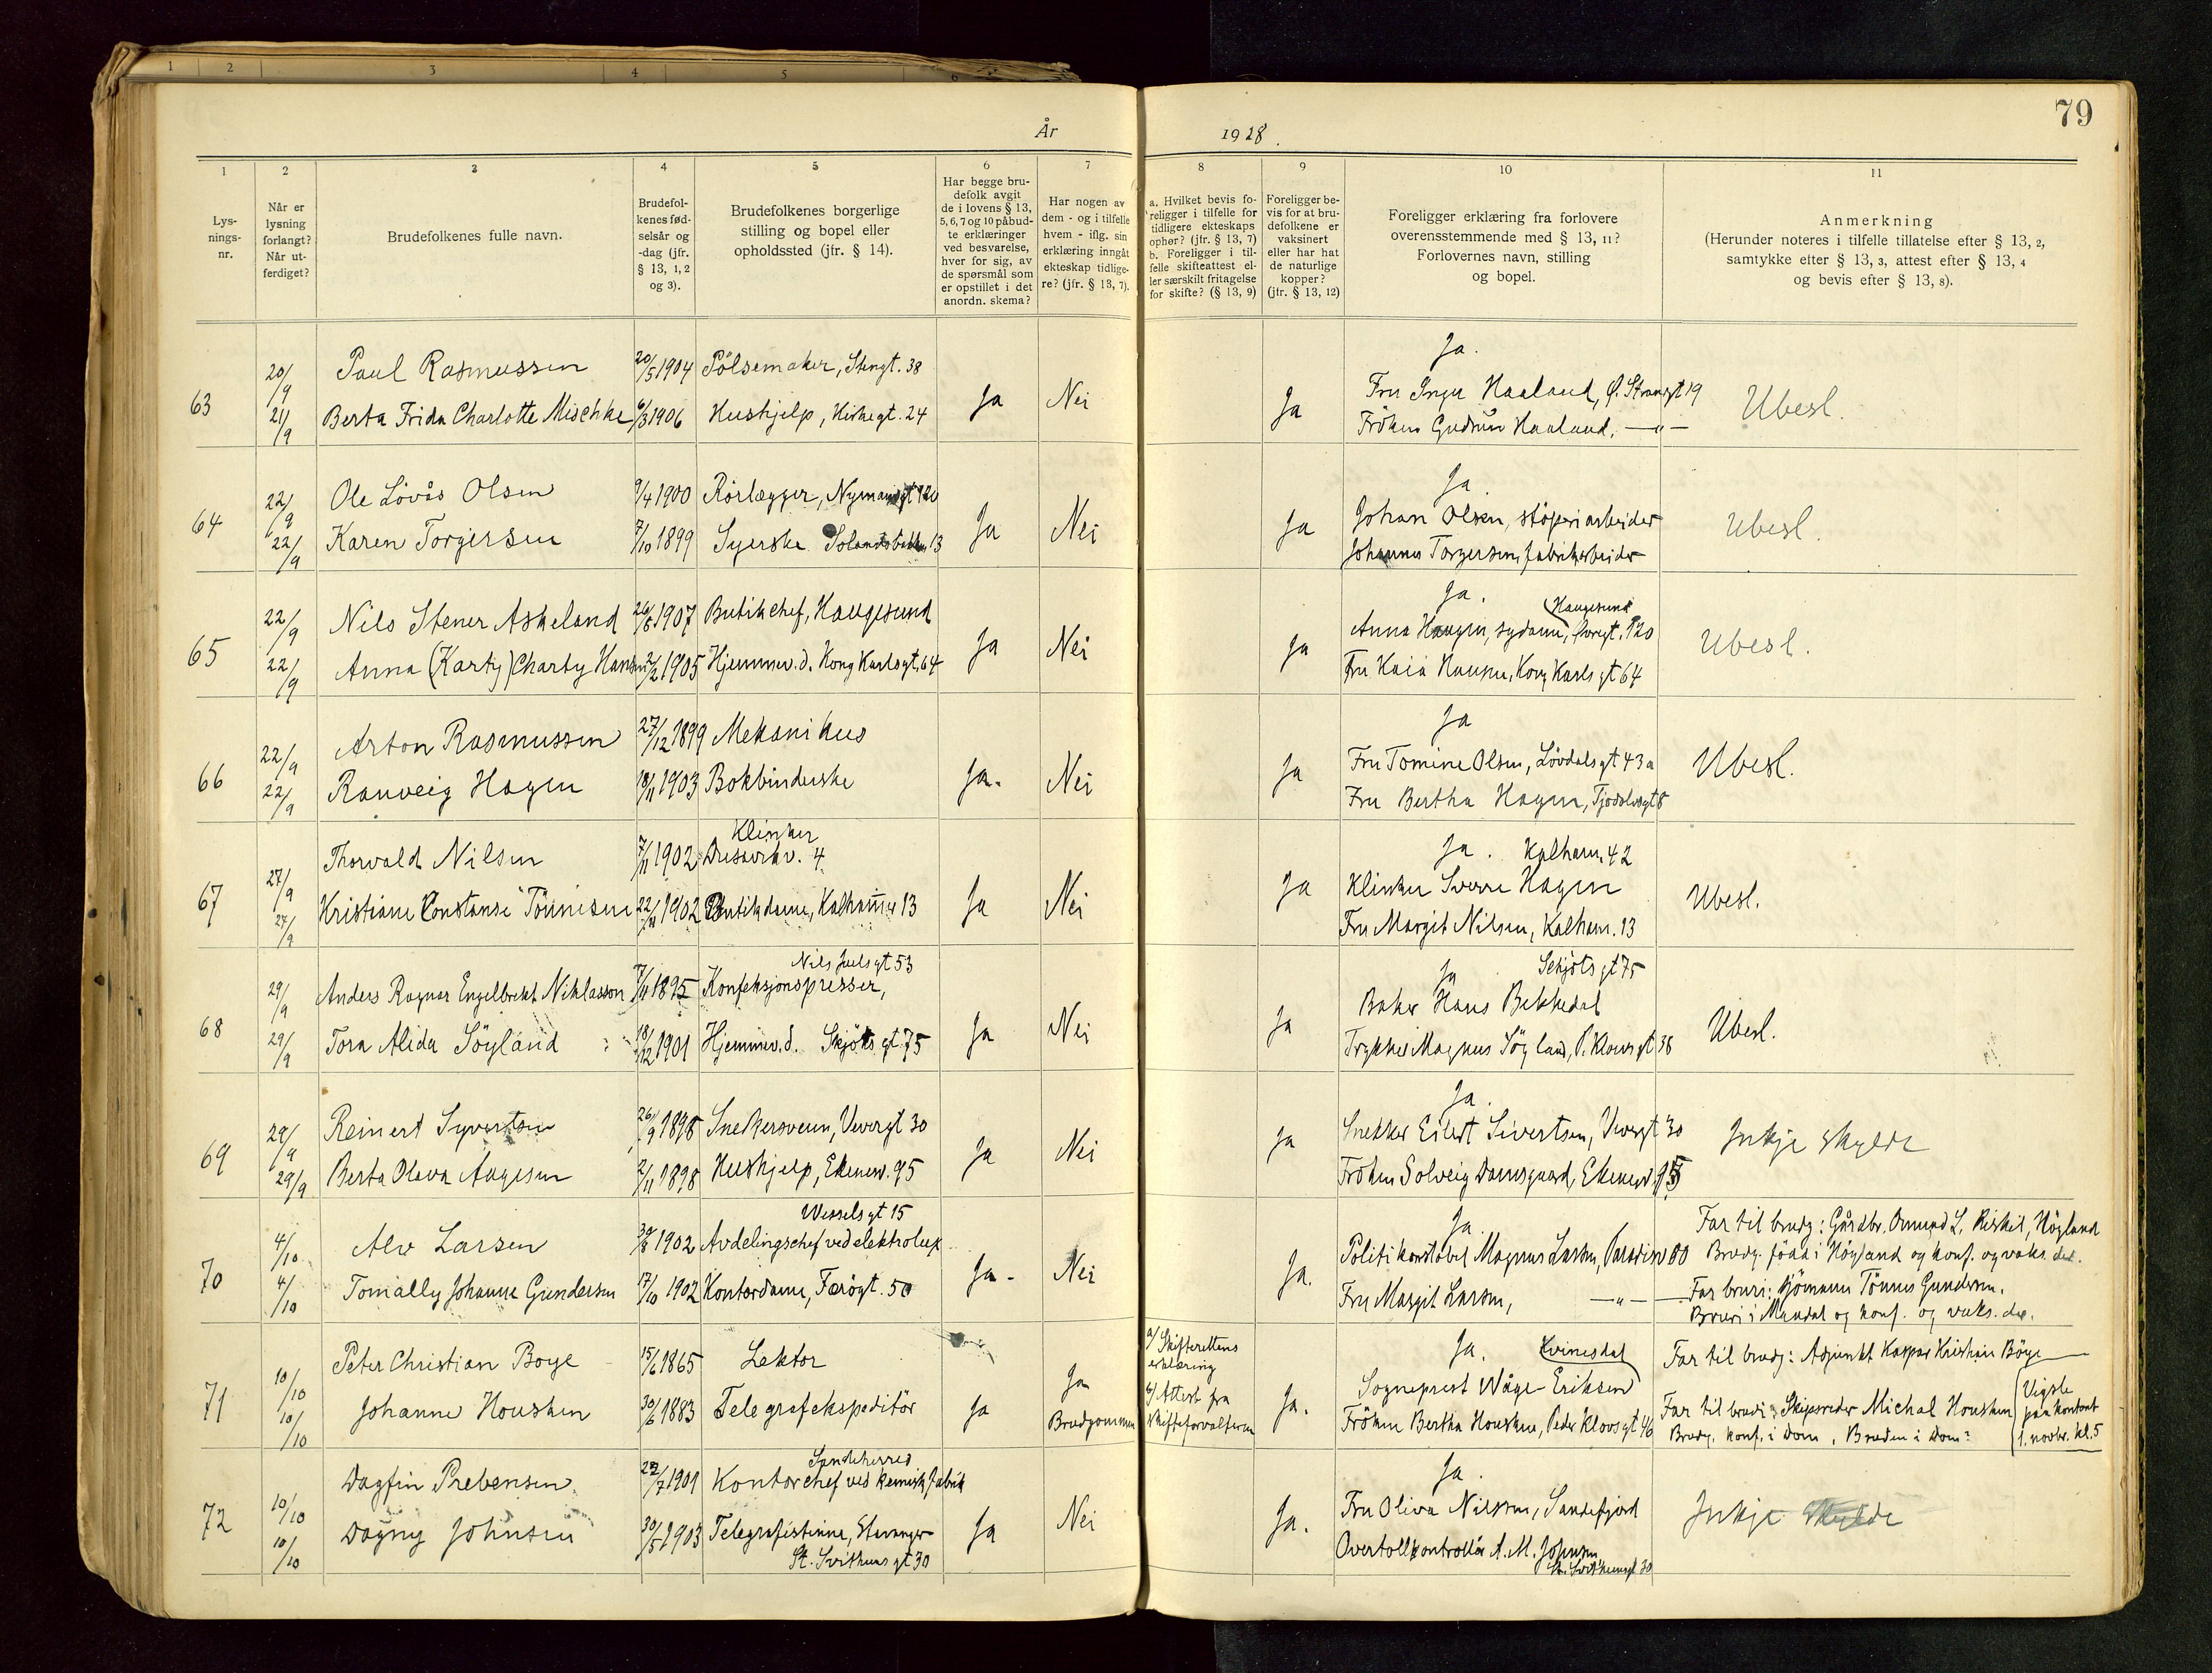 1 2 3 4 5 6
79
År 1928.
1 2 3 4 5 6 7 8 9 10 11
Lys-
nings-
nr.
Når er
lysning
forlangt?
Når ut-
ferdiget?
Brudefolkenes fulle navn.
Brudefol-
kenes fød-
selsår og
-dag (jfr.
§ 13, 1, 2
og 3).
Brudefolkenes borgerlige
stilling og bopel eller
opholdssted (jfr. § 14).
Har begge bru-
defolk avgit
de i lovens § 13,
5, 6, 7 og 10 påbud-
te erklæringer
ved besvarelse,
hver for sig, av
de spørsmål som
er opstillet i det
anordn. skema?
Har nogen av
dem - og i tilfelle
hvem - iflg. sin
erklæring inngåt
ekteskap tidlige-
re? (jfr. § 13, 7).
a. Hvilket bevis fo-
religger i tilfelle for
tidligere ekteskaps
ophør? (jfr. § 13, 7)
b. Foreligger i til-
felle skifteattest el-
ler særskilt fritagelse
for skifte? (§ 13, 9)
Foreligger be-
vis for at bru-
defolkene er
vaksinert
eller har hat
de naturlige
kopper?
(jfr. § 13, 12)
Foreligger erklæring fra forlovere
overensstemmende med § 13, 11?
Forlovernes navn, stilling
og bopel.
Anmerkning
(Herunder noteres i tilfelle tillatelse efter § 13, 2,
samtykke efter § 13, 3, attest efter § 13, 4
og bevis efter § 13, 8).
63
20/9
21/9
Paul Rasmussen
Berta Frida Charlotte Mischke
20/5 1904
6/3 1906
Pölsemaker, Stengt. 38
Hushjelp, Kirkegt. 24
Ja
Nei
Ja
Ja.
Fru Inga Haaland, Ø. Strandgt 19
Fröken Gudrun Haaland, — " —
Ubesl.
64
22/9
22/9
Ole Lövås Olsen
Karen Torgersen
9/4 1900
7/10 1899
Rörlægger, Nymansgt 120
Syerske Solandsbakken 13
Ja
Nei
Ja
Ja.
Johan Olsen, stöperiarbeider
Johannes Torgersen, fabrikarbeider
Ubesl.
65
22/9
22/9
Nils Stener Askeland
Anna (Karty) Charty Hansen
26/8 1907
2/2 1905
Butikchef, Haugesund
Hjemmev. d. Kong Karlsgt. 64
Ja
Nei
Ja
Ja.
Haugesund
Anna Haugen, sydame, Øvregt. 120
Fru Kaia Hansen, Kong Karls gt 64
Ubesl.
66
22/9
22/9
Arton Rasmussen
Ranveig Hagen
27/12 1899
18/11 1903
Mekanikus
Bokbinderske
Ja.
Nei
Ja
Ja
Fru Tomine Olsen, Lövdalsgt 43a
Fru Bertha Hagen, Tjodolvsgt 8
Ubesl.
67
27/9
27/9
Thorvald Nilsen
Kristiane Constanse Tönnesen
7/11 1902
22/11 1902
Klinker
Dusavikv. 4
Butikdame, Kalhammer 13
Ja
Nei
Ja
Ja. Kalham. 42
Klinker Sverre Hagen
Fru Margit Nilsen, Kalham. 13
Ubesl.
68
29/9
29/9
Anders Ragnar Engelbrekt Niklasson
Tora Alida Söyland
7/11 1895
18/12 1901
Nils Juels gt 53
Konfeksjonspresser,
Hjemmev. d. Skjöts gt. 75
Ja
Nei
Ja
Ja Schjöts gt 75
Baker Hans Bekkedal
Trykker Magnus Söyland, P. Klowsgt 38
Ubesl.
69
29/9
29/9
Reinert Syvertsen
Berta Olava Aagesen
26/9 1898
2/11 1898
Snekkersvenn, Vevergt 30
Hushjelp, Ekenesv. 95
Ja
Nei
Ja
Ja.
Snekker Eilert Sivertsen, Vevergt 30
Fröken Solveig Damsgaard, Ekenesv. 95
Inkje skylde
70
4/10
4/10
Alv Larsen
Tomally Johanne Gundersen
30/8 1902
17/10 1902
Wesselsgt 15
Avdelingschef ved elektrolux
Kontordame, Færögt. 50
Ja -
Nei
Ja.
Ja.
Politikonstabel Magnus Larsen, Paradisv 80
Fru Margit Larsen, — " —
Far til brudg: Gårdbr. Omund L. Riskil, Högland
Brudg. född i Högland og konf. og vaks. der.
Far bruri: Sjömann Tönnes Gundersen.
Bruri i Mandal og konf. og vaks. der.
71
10/10
10/10
Peter Christian Boye
Johanne Housken
15/6 1865
30/6 1883
Lektor
Telegrafekspeditör
Ja
Ja
Brudgommen
a/ Skifterettens
erklæring
b/ Attest fra
Skifteforvalteren
Ja.
Ja. Kvinesdal
Sogneprest Wåge-Eriksen
Fröken Bertha Housken, Peder Klowsgt 46
Far til brudg: Adjunkt Kaspar Kristian Böye
Far til brudi: Skipsreder Michal Housken
Brudg. konf. i Dom. Bruden i Dom:
Vigsle
paa kontoret
1. novbr. kl. 5
72
10/10
10/10
Dagfin Prebensen
Dagny Johnsen
22/7 1901
30/5 1903
Sandeherred
Kontorchef ved kemisk fabrik
Telegrafistinne, Stavanger
St. Svithuns gt 30
Ja
Nei
Ja.
Ja.
Fru Oliva Nilssen, Sandefjord
Overtollkontrollör A. M. Johnsen
St. Svithunsgt 30
Inkje skylde